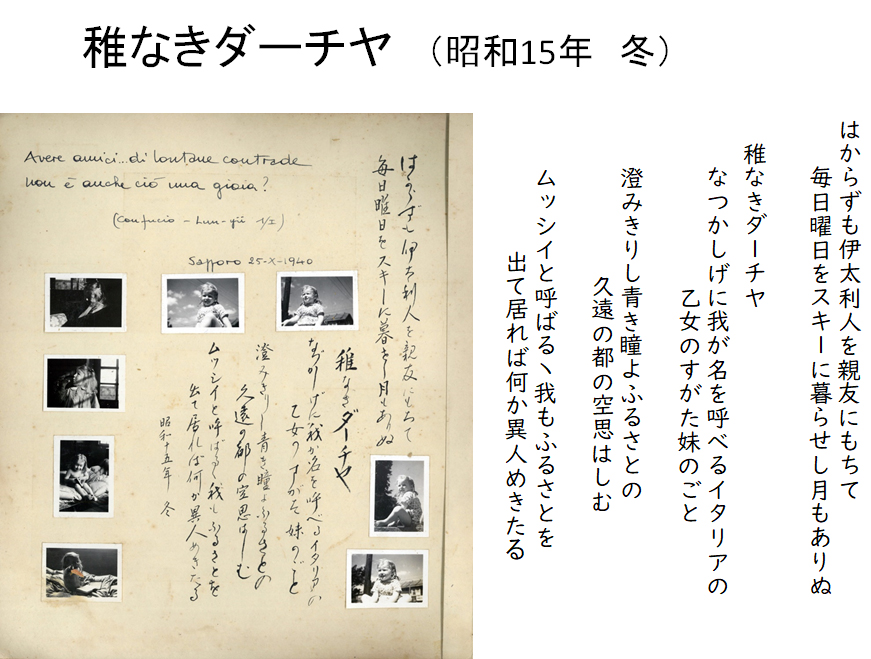 稚なきダーチヤ　（昭和15年　冬）
Avere amici...di lontane contrade
non è anche ciò una gioia?
(Confucio - Lun-yü 1/I)
Sapporo 25-X-1940
はからずも伊太利人を親友にもちて
毎日曜日をスキーに暮らせし月もありぬ
稚なきダーチヤ
なつかしげに我が名を呼べるイタリアの
乙女のすがた妹のごと
澄みきりし青き瞳よふるさとの
久遠の都の空思はしむ
ムッシイと呼ばるヽ我もふるさとを
出て居れば何か異人めきたる
昭和十五年　冬
はからずも伊太利人を親友にもちて
毎日曜日をスキーに暮らせし月もありぬ
稚なきダーチヤ
なつかしげに我が名を呼べるイタリアの
乙女のすがた妹のごと
澄みきりし青き瞳よふるさとの
久遠の都の空思はしむ
ムッシイと呼ばるヽ我もふるさとを
出て居れば何か異人めきたる